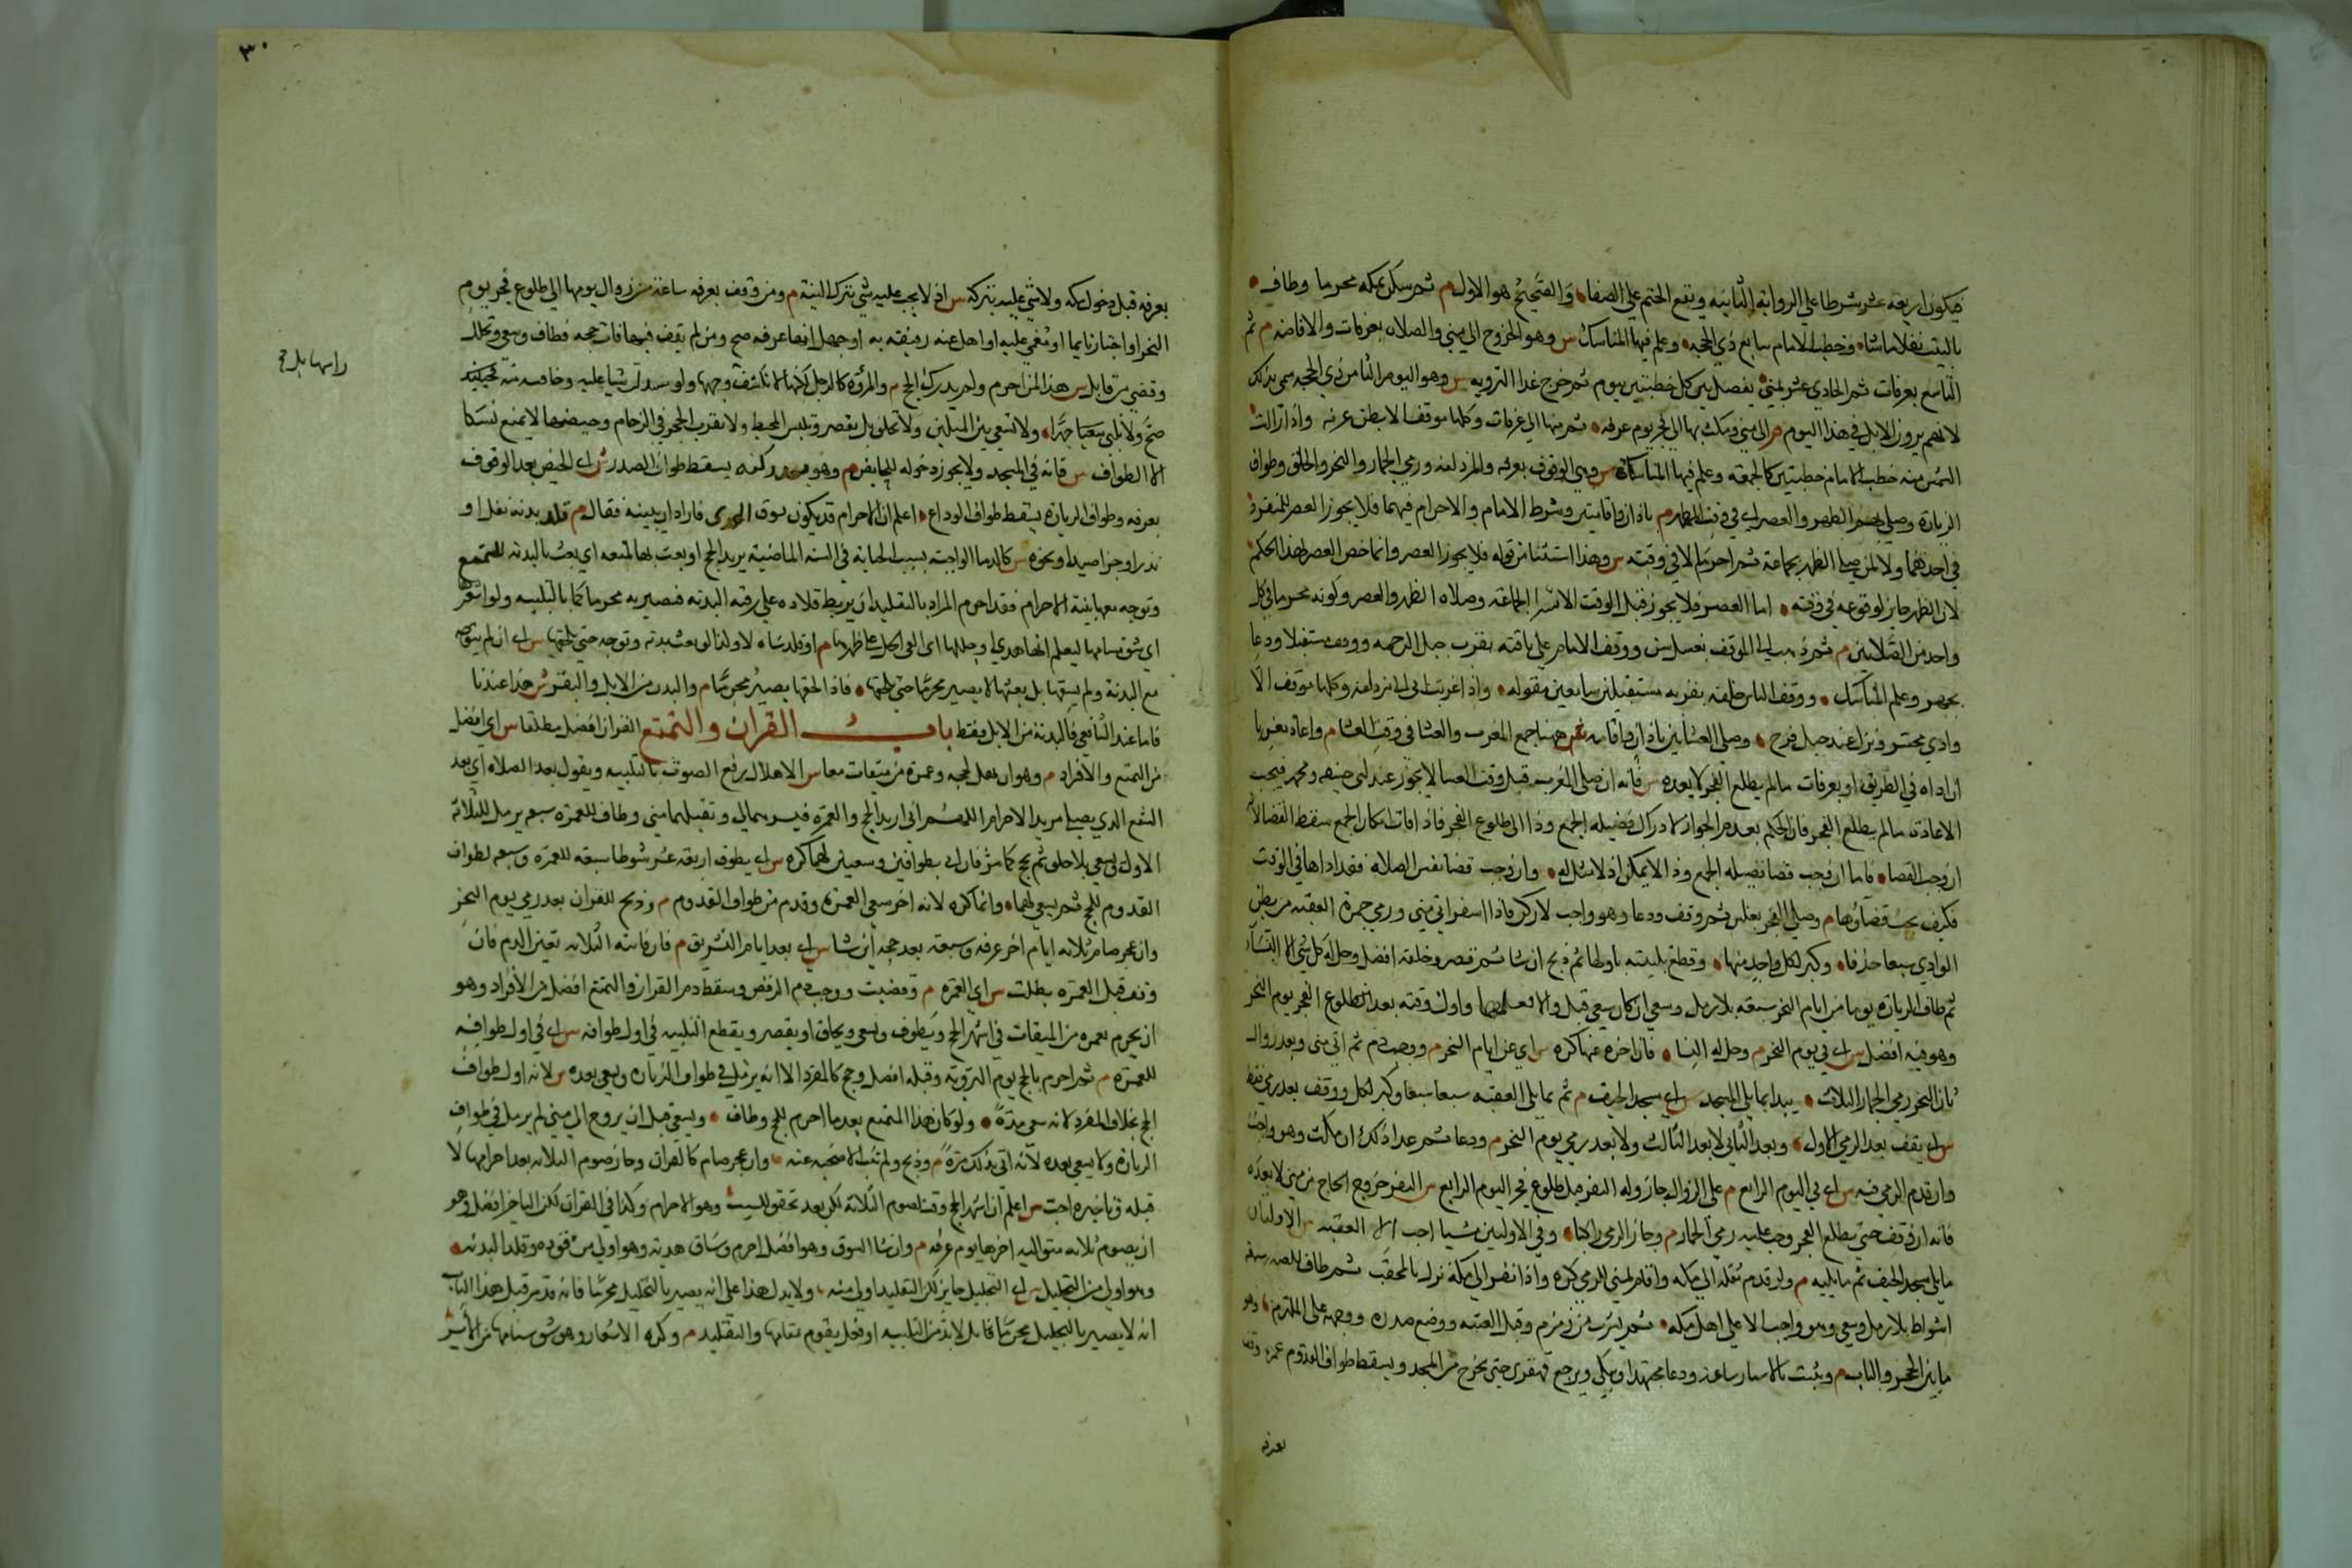 فيكون اربعة عشر شرطا على الرواية الثانية ويقع الختم على الصفا والصحيح هو الاول م ثم سكن بمكة محرما وطاف
بالبيت نفلا ما شاء وخطب الامام سابع ذي الحجة وعلم فيها المناسك س وهو الخروج الى منى والصلاة بعرفات والافاضة م ثم
التاسع بعرفات ثم الحادي عشر بمنى يفصل بين كل خطبتين بيوم ثم خرج غداة التروية س وهو اليوم الثامن من ذي الحجة سمي بذلك
لانهم يروون الابل في هذا اليوم م الى منى ومكث بها الى فجر يوم عرفة ثم منها الى عرفات وكلها موقف الا بطن عرنة واذا زالت
الشمس منه خطب الامام خطبتين كالجمعة وعلم فيها المناسك س وهي الوقوف بعرفة والمزدلفة ورمي الجمار والنحر والحلق وطواف
الزيارة وصلى بهم الظهر والعصر اي في وقت الظهر م باذان واقامتين وشرط الامام والاحرام فيهما فلا يجوز العصر للمنفرد
في احدهما ولا لمن صلى الظهر بجماعة ثم احرم الا في وقته س وهذا استثنا من قوله فلا يجوز العصر وانما خص العصر بهذا الحكم
لان الظهر جايز لوقوعه في وقته اما العصر فلا يجوز قبل الوقت الا بشرط الجماعة وصلاة الظهر والعصر وكونه محرما في كل
واحد من الصلاتين م ثم ذهب الى الموقف بغسل سن ووقف الامام على ناقته بقرب جبل الرحمة مستقبلا ودعا
بجهر وعلم المناسك ووقف الناس خلفه بقربه مستقبلين سامعين مقوله واذا غربت اتى مزدلفة وكلها موقف الا
وادي محسر ونزل عند جبل قزح وصلى العشائين باذان واقامة ههنا جمع المغرب والعشا في وقت العشا م واعاد مغربا
ان اداه في الطريق او بعرفات ما لم يطلع الفجر لا بعده س فانه ان صلى المغرب قبل وقت العشا لا يجوز عند ابي حنيفة ومحمد فيجب
الاعادة ما لم يطلع الفجر فان الحكم بعدم الجواز لادراك فضيلة الجمع وذا الى طلوع الفجر فاذا فات امكان الجمع سقط القضا لانه
ان وجب القضاء فاما ان وجب قضا فضيلة الجمع وذا لا يمكن اذ لا مثل له وان وجب قضا نفس الصلاة فقد اداها في الوقت
فكيف يجب قضاؤها م وصلى الفجر بغلس ثم وقف ودعا وهو واجب لا ركن فاذا اسفر اتى منى ورمى جمرة العقبة من بطن
الوادي سبعا خذفا وكبر لكل واحد منها وقطع تلبيته باولها ثم ذبح ان شا ثم قصر وحلقه افضل وحل له كل شي الا النساء
ثم طاف للزيارة يوما من ايام النحر سبعة بلا رمل وسعي ان كان سعى قبل والا فمعهما واول وقته بعد طلوع الفجر يوم النحر
وهو فيه افضل س اي في يوم النحر م وحل له النساء فان اخره عنها كره س اي عن ايام النحر م ووجب دم ثم اتى منى وبعد زوال
ثاني النحر رمى الجمار الثلاث يبدا بما يلي المسجد س اي مسجد الخيف م ثم بما يلي العقبة سبعا سبعا وكبر لكل ووقف بعد رمي فقط
س اي يقف بعد الرمي الاول وبعد الثاني لا بعد الثالث ولا بعد رمي يوم النحر م ودعا ثم غدا كذلك ان مكث وهو واجب
وان قدم الرمي فيه س اي في اليوم الرابع م على الزوال جاز وله النفر قبل طلوع فجر اليوم الرابع س النفر خروج الحاج من منى لا بعده
فانه ان وقف حتى يطلع الفجر وجب عليه رمي الجمار م وجاز الرمي راكبا وفي الاوليين مشيا احب الا العقبة س الاوليان
ما يلي مسجد الخيف ثم ما يليه م ولو قدم ثقله الى مكة واقام بمنى للرمي كره واذا نفر الى مكة نزل بالمحصب ثم طاف للصدر سبعة
اشواط بلا رمل وسعي وهو واجب الا على اهل مكة ثم شرب من زمزم وقبل العتبة ووضع صدره ووجهه على الملتزم وهو
ما بين الحجر والباب م وتشبث بالاستار ساعة ودعا مجتهدا ويبكي ويرجع قهقرى حتى يخرج من المسجد ويسقط طواف القدوم عمن وقف
بعرفة
٣٠
بعرفة قبل دخول مكة ولا شي عليه بتركه س اذ لا يجب عليه شي بترك السنة م ومن وقف بعرفة ساعة من زوال يومها الى طلوع فجر يوم
النحر او اجتاز نايما او مغمى عليه او اهل عنه رفيقه به او جهل انها عرفة صح ومن لم يقف فيها فات حجه فطاف وسعى وتحلل
وقضى من قابل س هذا لمن احرم ولم يدرك الحج م والمرأة كالرجل لكنها لا تكشف وجهها ولو سدلت شيا عليه وجافته عنه
صح ولا تلبي جهرا ولا تسعى بين الميلين ولا تحلق بل تقصر وتلبس المخيط ولا تقرب الحجر في الزحام وحيضها لا يمنع نسكا
الا الطواف س فانه في المسجد ولا يجوز دخوله للحايض م وهو بعد ركنيه يسقط طواف الصدر س اي الحيض بعد الوقوف
بعرفة وطواف الزيارة يسقط طواف الوداع اعلم ان الاحرام قد يكون بسوق الهدي فاراد ان يبينه فقال م قلد بدنة نفل او
نذر او جزا صيد او نحوه س كالدما الواجبة بسبب الجناية في السنة الماضية يريد الحج او بعث بها لمتعة اي بعث بالبدنة للتمتع
وتوجه معها بنية الاحرام فقد احرم المراد بالتقليد ان يربط قلادة على رقبة البدنة فيصير به محرما كما بالتلبية ولو اشعر
اي شق سنامها ليعلم انها هدي او جللها اي القى الجل على ظهرها م او قلد شاة لا ولذا لو بعث ببدنة وتوجه حتى يلحقها س اي ان لم يتوجه
مع البدنة ولم يسقها بل بعثها لا يصير محرما حتى يلحقها فاذا لحقها يصير محرما م والبدن من الابل والبقر س هذا عندنا
فاما عند الشافعي فالبدنة من الابل فقط باب القران والتمتع القران افضل مطلقا س اي افضل
من التمتع والافراد م وهو ان يهل بحجة وعمرة من ميقات معا س الاهلال رفع الصوت بالتلبية ويقول بعد الصلاة اي بعد
الشفع الذي يصلي مريد الاحرام اللهم اني اريد الحج والعمرة فيسرهما لي وتقبلهما مني وطاف للعمرة سبعة يرمل للثلاثة
الاول ويسعى بلا حلق ثم يحج كما مر فان اتى بطوافين وسعيين لهما كره س اي يطوف اربعة عشر شوطا سبعة للعمرة وسبعة لطواف
القدوم للحج ثم يسعى لهما وانما كره لانه اخر سعي العمرة وقدم من طواف القدوم م وذبح للقران بعد رمي يوم النحر
وان عجز صام ثلاثة ايام اخرها عرفة وسبعة بعد حجه اين شا س اي بعد ايام التشريق م فان فاتته الثلاثة تعين الدم فان
وقف قبل العمرة بطلت س اي العمرة م وقضيت ووجب دم الرفض وسقط دم القران والتمتع افضل من الافراد وهو
ان يحرم بعمرة من الميقات في اشهر الحج ويطوف ويسعى ويحلق او يقصر ويقطع التلبية في اول طوافه س اي في اول طوافه
للعمرة م ثم احرم بالحج يوم التروية وقبله افضل وحج كالمفرد الا انه يرمل في طواف الزيارة ويسعى بعده س لانه اول طواف
الحج بخلاف المفرد لانه سعى مرة ولو كان هذا المتمتع بعد ما احرم للحج وطاف وسعى قبل ان يروح الى منى لم يرمل في طواف
الزيارة ولا يسعى بعده لانه اتى بذلك مرة م وذبح ولم تنب الاضحية عنه وان عجز صام كالقران وجاز صوم الثلاثة بعد احرامها لا
قبله وتاخيره احب س اعلم ان اشهر الحج وقت لصوم الثلاثة لكن بعد تحقق السبب وهو الاحرام وكذا في القران لكن التاخير افضل وهو
ان يصوم ثلاثة متوالية اخرها يوم عرفة م وان شا السوق وهو افضل احرم وساق هديه وهو اولى من قوده وقلد البدنة
وهو اولى من التجليل س اي التجليل جايز لكن التقليد اولى منه ولا يدل هذا على انه يصير بالتجليل محرما فانه قد مر قبل هذا الباب
انه لا يصير بالتجليل محرما فانه لا بد من التلبية او فعل يقوم مقامها والتقليد م وكره الاشعار وهو شق سنامها من الايسر